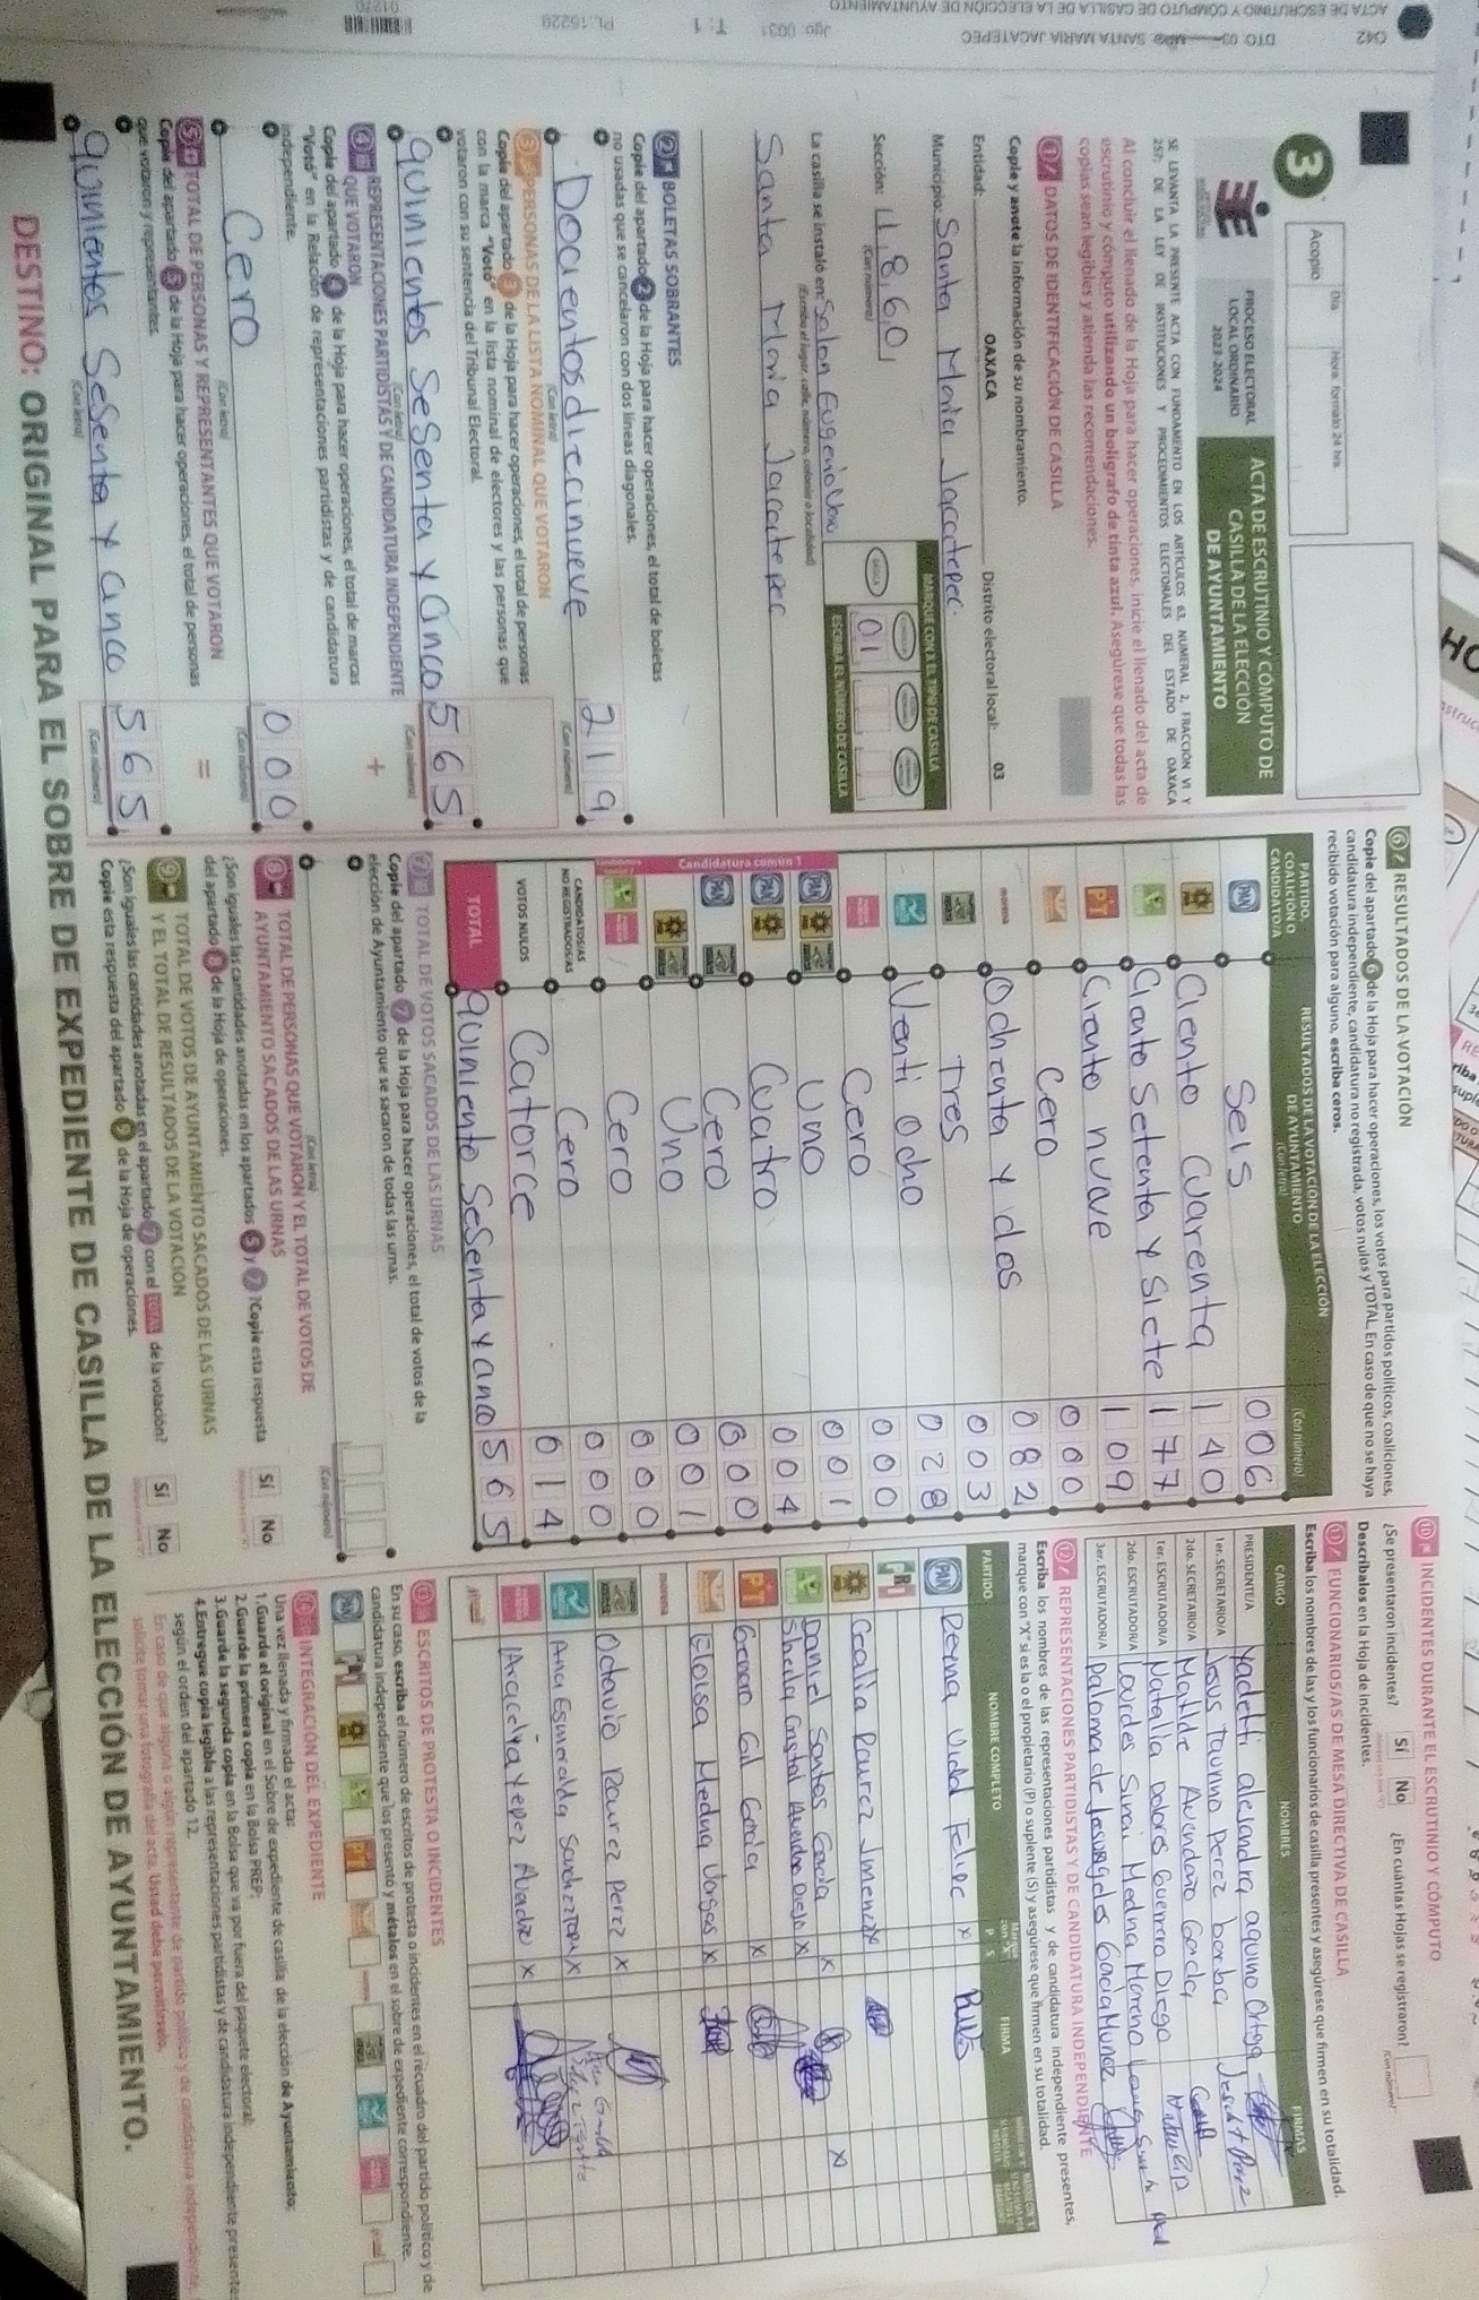 3
Acopio
Día
Hora: formato 24 hrs.
PROCESO ELECTORAL
LOCAL ORDINARIO
2023-2024
ACTA DE ESCRUTINIO Y CÓMPUTO DE
CASILLA DE LA ELECCIÓN
DE AYUNTAMIENTO
SE LEVANTA LA PRESENTE ACTA CON FUNDAMENTO EN LOS ARTÍCULOS 63, NUMERAL 2, FRACCIÓN VI Y
257; DE LA LEY DE INSTITUCIONES Y PROCEDIMIENTOS ELECTORALES DEL ESTADO DE OAXACA
Al concluir el llenado de la Hoja para hacer operaciones, inicie el llenado del acta de
escrutinio y cómputo utilizando un bolígrafo de tinta azul. Asegúrese que todas las
copias sean legibles y atienda las recomendaciones.
1 DATOS DE IDENTIFICACIÓN DE CASILLA
Copie y anote la información de su nombramiento.
Entidad: OAXACA Distrito electoral local: 03
Municipio: Santa Maria Jacatepec.
Sección: 1860
(Con número)
MARQUE CON X EL TIPO DE CASILLA
01
ESCRIBA EL NÚMERO DE CASILLA
La casilla se instaló en: Salon Eugenio
(Escriba el lugar, calle, número, colonia o localidad)
Santa Maria Jacatepec
2 BOLETAS SOBRANTES
Copie del apartado 2 de la Hoja para hacer operaciones, el total de boletas
no usadas que se cancelaron con dos líneas diagonales.
Docientosdiecinueve 219
(Con letra) (Con número)
3 PERSONAS DE LA LISTA NOMINAL QUE VOTARON
Copie del apartado 3 de la Hoja para hacer operaciones, el total de personas
con la marca "Votó" en la lista nominal de electores y las personas que
votaron con su sentencia del Tribunal Electoral.
quinientos sesenta y cinco 565
(Con letra) (Con número)
4 REPRESENTACIONES PARTIDISTAS Y DE CANDIDATURA INDEPENDIENTE
QUE VOTARON
+
Copie del apartado 4 de la Hoja para hacer operaciones, el total de marcas
"Votó" en la Relación de representaciones partidistas y de candidatura
independiente.
Cero 000
(Con letra) (Con número)
5 TOTAL DE PERSONAS Y REPRESENTANTES QUE VOTARON
=
Copie del apartado 5 de la Hoja para hacer operaciones, el total de personas
que votaron y representantes.
quinientos sesenta y cinco 565
(Con letra) (Con número)
6 RESULTADOS DE LA VOTACIÓN
Copie del apartado 6 de la Hoja para hacer operaciones, los votos para partidos políticos, coaliciones,
candidatura independiente, candidatura no registrada, votos nulos y TOTAL. En caso de que no se haya
recibido votación para alguno, escriba ceros.
PARTIDO,
COALICIÓN O
CANDIDATO/A
RESULTADOS DE LA VOTACIÓN DE LA ELECCIÓN
DE AYUNTAMIENTO
(Con letra)
(Con número)
PAN Seis 006
Ciento Cuarenta 140
Ciento Setenta y Siete 177
PT Ciento nueve 109
Cero 000
morena Ochenta y dos 082
Tres 003
Venti ocho 028
Cero 000
Candidatura común 1
PAN Uno 001
PAN Cuatro 004
PAN Cero 000
Uno 001
Cero 000
CANDIDATOS/AS
NO REGISTRADOS/AS Cero 000
VOTOS NULOS Catorce 014
TOTAL quiniento Sesenta y cinco 565
7 TOTAL DE VOTOS SACADOS DE LAS URNAS
Copie del apartado 7 de la Hoja para hacer operaciones, el total de votos de la
elección de Ayuntamiento que se sacaron de todas las urnas.
(Con letra) (Con número)
8 TOTAL DE PERSONAS QUE VOTARON Y EL TOTAL DE VOTOS DE
AYUNTAMIENTO SACADOS DE LAS URNAS
¿Son iguales las cantidades anotadas en los apartados 5 y 7? Copie esta respuesta
del apartado 8 de la Hoja de operaciones.
Sí No
9 TOTAL DE VOTOS DE AYUNTAMIENTO SACADOS DE LAS URNAS
Y EL TOTAL DE RESULTADOS DE LA VOTACIÓN
¿Son iguales las cantidades anotadas en el apartado 7 con el TOTAL de la votación?
Copie esta respuesta del apartado 9 de la Hoja de operaciones.
Sí No
10 INCIDENTES DURANTE EL ESCRUTINIO Y CÓMPUTO
¿Se presentaron incidentes? Sí No ¿En cuántas Hojas se registraron?
(Con número)
Descríbalos en la Hoja de incidentes.
11 FUNCIONARIOS/AS DE MESA DIRECTIVA DE CASILLA
Escriba los nombres de las y los funcionarios de casilla presentes y asegúrese que firmen en su totalidad.
CARGO NOMBRES FIRMAS
PRESIDENTE/A Yadetti alejandra aquino Ortega
1er. SECRETARIO/A Jesus Taurino Perez barba
2do. SECRETARIO/A Matilde Avendaño Garcia
1er. ESCRUTADOR/A Natalia Dolores Guerrero Diego
2do. ESCRUTADOR/A Lourdes Sirai Medina Moreno
3er. ESCRUTADOR/A Paloma de Jesus Garcia Muñoz
12 REPRESENTACIONES PARTIDISTAS Y DE CANDIDATURA INDEPENDIENTE
Escriba los nombres de las representaciones partidistas y de candidatura independiente presentes,
marque con "X" si es la o el propietario (P) o suplente (S) y asegúrese que firmen en su totalidad.
PARTIDO NOMBRE COMPLETO P S FIRMA
PAN Reena Vidal Felipe x
PRI
Ramirez Jimenez x
Daniel Santos Garcia x x
Sheila Cristal Avendaño Diego x
PT Genaro Gil Garcia x
Eloisa Medina Vargas x
morena
Octavio Ramirez Perez x
Ana Esmeralda Sanchez x
Aracelya Yepez x
13 ESCRITOS DE PROTESTA O INCIDENTES
En su caso, escriba el número de escritos de protesta o incidentes en el recuadro del partido político y de
candidatura independiente que los presentó y métalos en el sobre de expediente correspondiente.
PAN PRI PT
INTEGRACIÓN DEL EXPEDIENTE
Una vez llenada y firmada el acta:
1. Guarde el original en el Sobre de expediente de casilla de la elección de Ayuntamiento;
2. Guarde la primera copia en la Bolsa PREP;
3. Guarde la segunda copia en la Bolsa que va por fuera del paquete electoral;
4. Entregue copia legible a las representaciones partidistas y de candidatura independiente presentes
según el orden del apartado 12.
En caso de que alguna o algún representante de partido político y de candidatura independiente,
solicite tomar una fotografía del acta, Usted debe permitírselo.
DESTINO: ORIGINAL PARA EL SOBRE DE EXPEDIENTE DE CASILLA DE LA ELECCIÓN DE AYUNTAMIENTO.
042 DTO: 03 SANTA MARIA JACATEPEC
ACTA DE ESCRUTINIO Y COMPUTO DE CASILLA DE LA ELECCIÓN DE AYUNTAMIENTO
Jgo: 0031 T: 1 PL.15229
01270